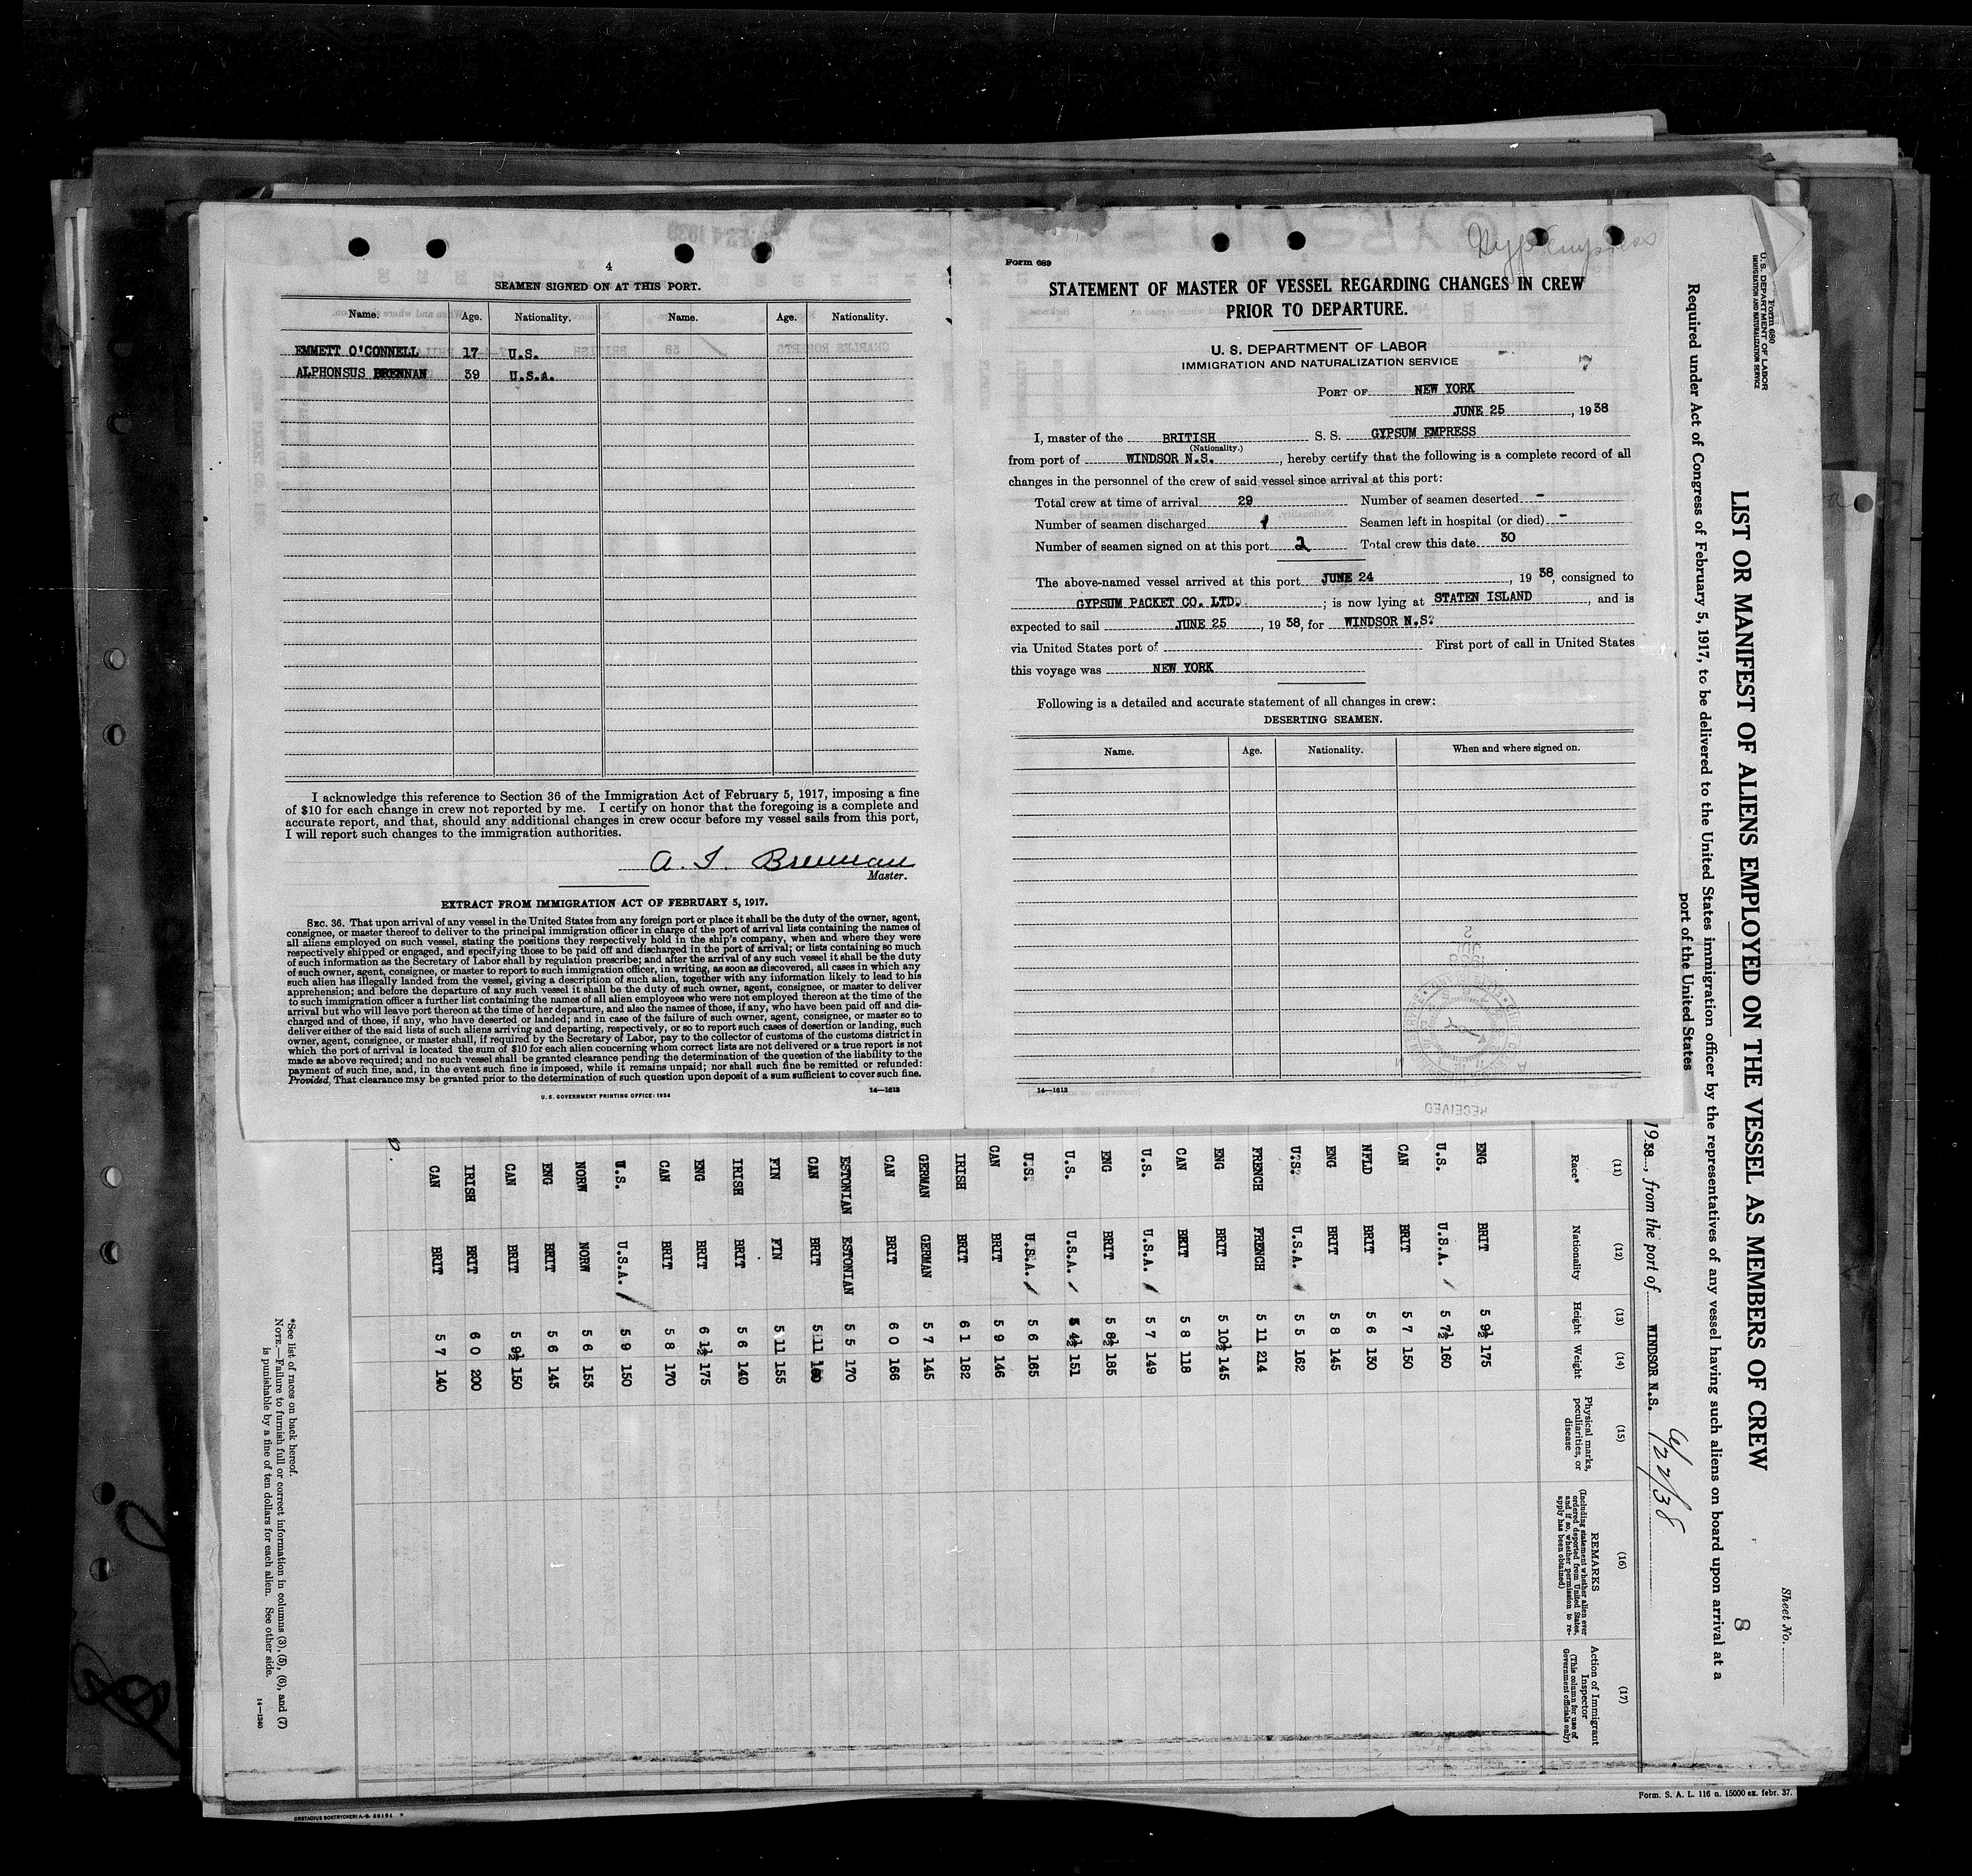 4
SEAMEN SIGNED ON AT THIS PORT.
Name. Age. Nationality. Name. Age. Nationality.
EMMETT O'CONNELL 17 U.S.
ALPHONSUS BRENNAN 39 U.S.A.
I acknowledge this reference to Section 36 of the Immigration Act of February 5, 1917, imposing a fine
of $10 for each change in crew not reported by me. I certify on honor that the foregoing is a complete and
accurate report, and that, should any additional changes in crew occur before my vessel sails from this port,
I will report such changes to the immigration authorities.
Brennan
Master.
EXTRACT FROM IMMIGRATION ACT OF FEBRUARY 5, 1917.
SEC. 36. That upon arrival of any vessel in the United States from any foreign port or place it shall be the duty of the owner, agent,
consignee, or master thereof to deliver to the principal immigration officer in charge of the port of arrival lists containing the names of
all aliens employed on such vessel, stating the positions they respectively hold in the ship's company, when and where they were
respectively shipped or engaged, and specifying those to be paid off and discharged in the port of arrival; or lists containing so much
of such information as the Secretary of Labor shall by regulation prescribe; and after the arrival of any such vessel it shall be the duty
of such owner, agent, consignee, or master to report to such immigration officer, in writing, as soon as discovered, all cases in which any
such alien has illegally landed from the vessel, giving a description of such alien, together with any information likely to lead to his
apprehension; and before the departure of any such vessel it shall be the duty of such owner, agent, consignee, or master to deliver
to such immigration officer a further list containing the names of all alien employees who were not employed thereon at the time of the
arrival but who will leave port thereon at the time of her departure, and also the names of those, if any, who have been paid off and dis-
charged and of those, if any, who have deserted or landed; and in case of the failure of such owner, agent, consignee, or master so to
deliver either of the said lists of such aliens arriving and departing, respectively, or so to report such cases of desertion or landing, such
owner, agent, consignee, or master shall, if required by the Secretary of Labor, pay to the collector of customs of the customs district in
which the port of arrival is located the sum of $10 for each alien concerning whom correct lists are not delivered or a true report is not
made as above required; and no such vessel shall be granted clearance pending the determination of the question of the liability to the
payment of such fine, and, in the event such fine is imposed, while it remains unpaid; nor shall such fine be remitted or refunded:
Provided, That clearance may be granted prior to the determination of such question upon deposit of a sum sufficient to cover such fine.
U.S. GOVERNMENT PRINTING OFFICE: 1934 14—1613
Gyp Empress
Form 689
STATEMENT OF MASTER OF VESSEL REGARDING CHANGES IN CREW
PRIOR TO DEPARTURE.
U. S. DEPARTMENT OF LABOR
IMMIGRATION AND NATURALIZATION SERVICE
PORT OF NEW YORK
JUNE 25, 1938
I, master of the BRITISH S. S. GYPSUM EMPRESS
(Nationality.)
from port of WINDSOR N.S., hereby certify that the following is a complete record of all
changes in the personnel of the crew of said vessel since arrival at this port:
Total crew at time of arrival 29 Number of seamen deserted -
Number of seamen discharged 1 Seamen left in hospital (or died) -
Number of seamen signed on at this port 2 Total crew this date 30
The above-named vessel arrived at this port JUNE 24, 1938, consigned to
GYPSUM PACKET CO. LTD.; is now lying at STATEN ISLAND, and is
expected to sail JUNE 25, 1938, for WINDSOR N.S.
via United States port of First port of call in United States
this voyage was NEW YORK
Following is a detailed and accurate statement of all changes in crew:
DESERTING SEAMEN.
Name. Age. Nationality. When and where signed on.
14—1613
RECEIVED
Form 680
U. S. DEPARTMENT OF LABOR
IMMIGRATION AND NATURALIZATION SERVICE
Sheet No.
LIST OR MANIFEST OF ALIENS EMPLOYED ON THE VESSEL AS MEMBERS OF CREW
8
Required under Act of Congress of February 5, 1917, to be delivered to the United States immigration officer by the representatives of any vessel having such aliens on board upon arrival at a
port of the United States
1938, from the port of WINDSOR N.S. 6/22/38
(11) (12) (13) (14) (15) (16) (17)
Race* Nationality Height Weight Physical marks, peculiarities, or disease REMARKS (Including statement whether alien ever ordered deported from United States, and if so, whether permission to reapply has been obtained) Action of Immigrant Inspector (This column for use of Government officials only)
ENG BRIT 5 9½ 175
U.S. U.S.A. 5 7½ 160
CAN BRIT 5 7 150
NFLD BRIT 5 6 130
ENG BRIT 5 8 145
U.S. U.S.A. 5 5 162
FRENCH FRENCH 5 11 214
ENG BRIT 5 10½ 145
CAN BRIT 5 8 118
U.S. U.S.A. 5 7 149
ENG BRIT 5 8½ 185
U.S. U.S.A. 5 4½ 151
U.S. U.S.A. 5 6 165
CAN BRIT 5 9 146
IRISH BRIT 6 1 182
GERMAN GERMAN 5 7 145
CAN BRIT 6 0 166
ESTONIAN ESTONIAN 5 5 170
CAN BRIT 5 11
FIN FIN 5 11 155
IRISH BRIT 5 6 140
ENG BRIT 6 1½ 175
CAN BRIT 5 8 170
U.S. U.S.A. 5 9 150
NORW NORW 5 6 153
ENG BRIT 5 6 143
CAN BRIT 5 9½ 150
IRISH BRIT 6 0 200
CAN BRIT 5 7 140
*See list of races on back hereof.
NOTE.—Failure to furnish full or correct information in columns (3), (5), (6), and (7)
is punishable by a fine of ten dollars for each alien. See other side.
14—1240
Form. S. A. L. 116 n. 15000 ex. febr. 37.